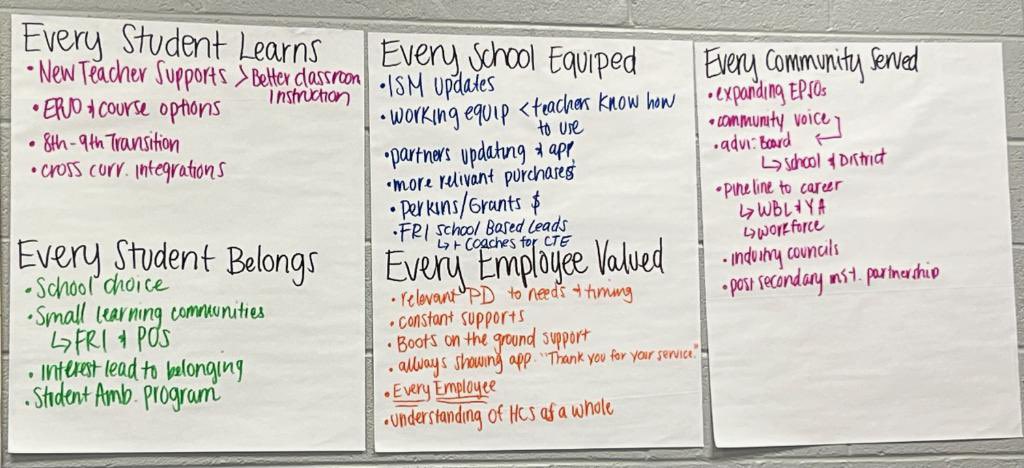 Every Student Learns
• New Teacher Supports > Better classroom
Instruction
• & course options
• 8th-9th Transition
• cross curr. integrations
Every Student Belongs
• School choice
• Small learning communities
↳ FRI & POS
• Interest lead to belonging
• Student Amb. program
Every School Equiped
• ISM Updates
• Working equip < teachers know how
to use
• partners updating & app
• more relivant purchases
• Perkins/Grants $
• FRI School Based Leads
↳ + Coaches for CTE
Every Employee Valued
• relevant PD to needs & timing
• constant supports
• Boots on the ground support
• always showing app. "Thank you for your service."
• Every Employee
• understanding of HCS as a whole
Every Community Served
• expanding EPSOs
• community voice
• advi. Board
↳ School & District
• pipeline to career
↳ WBL & YA
↳ workforce
• industry councils
• post secondary inst. partnership